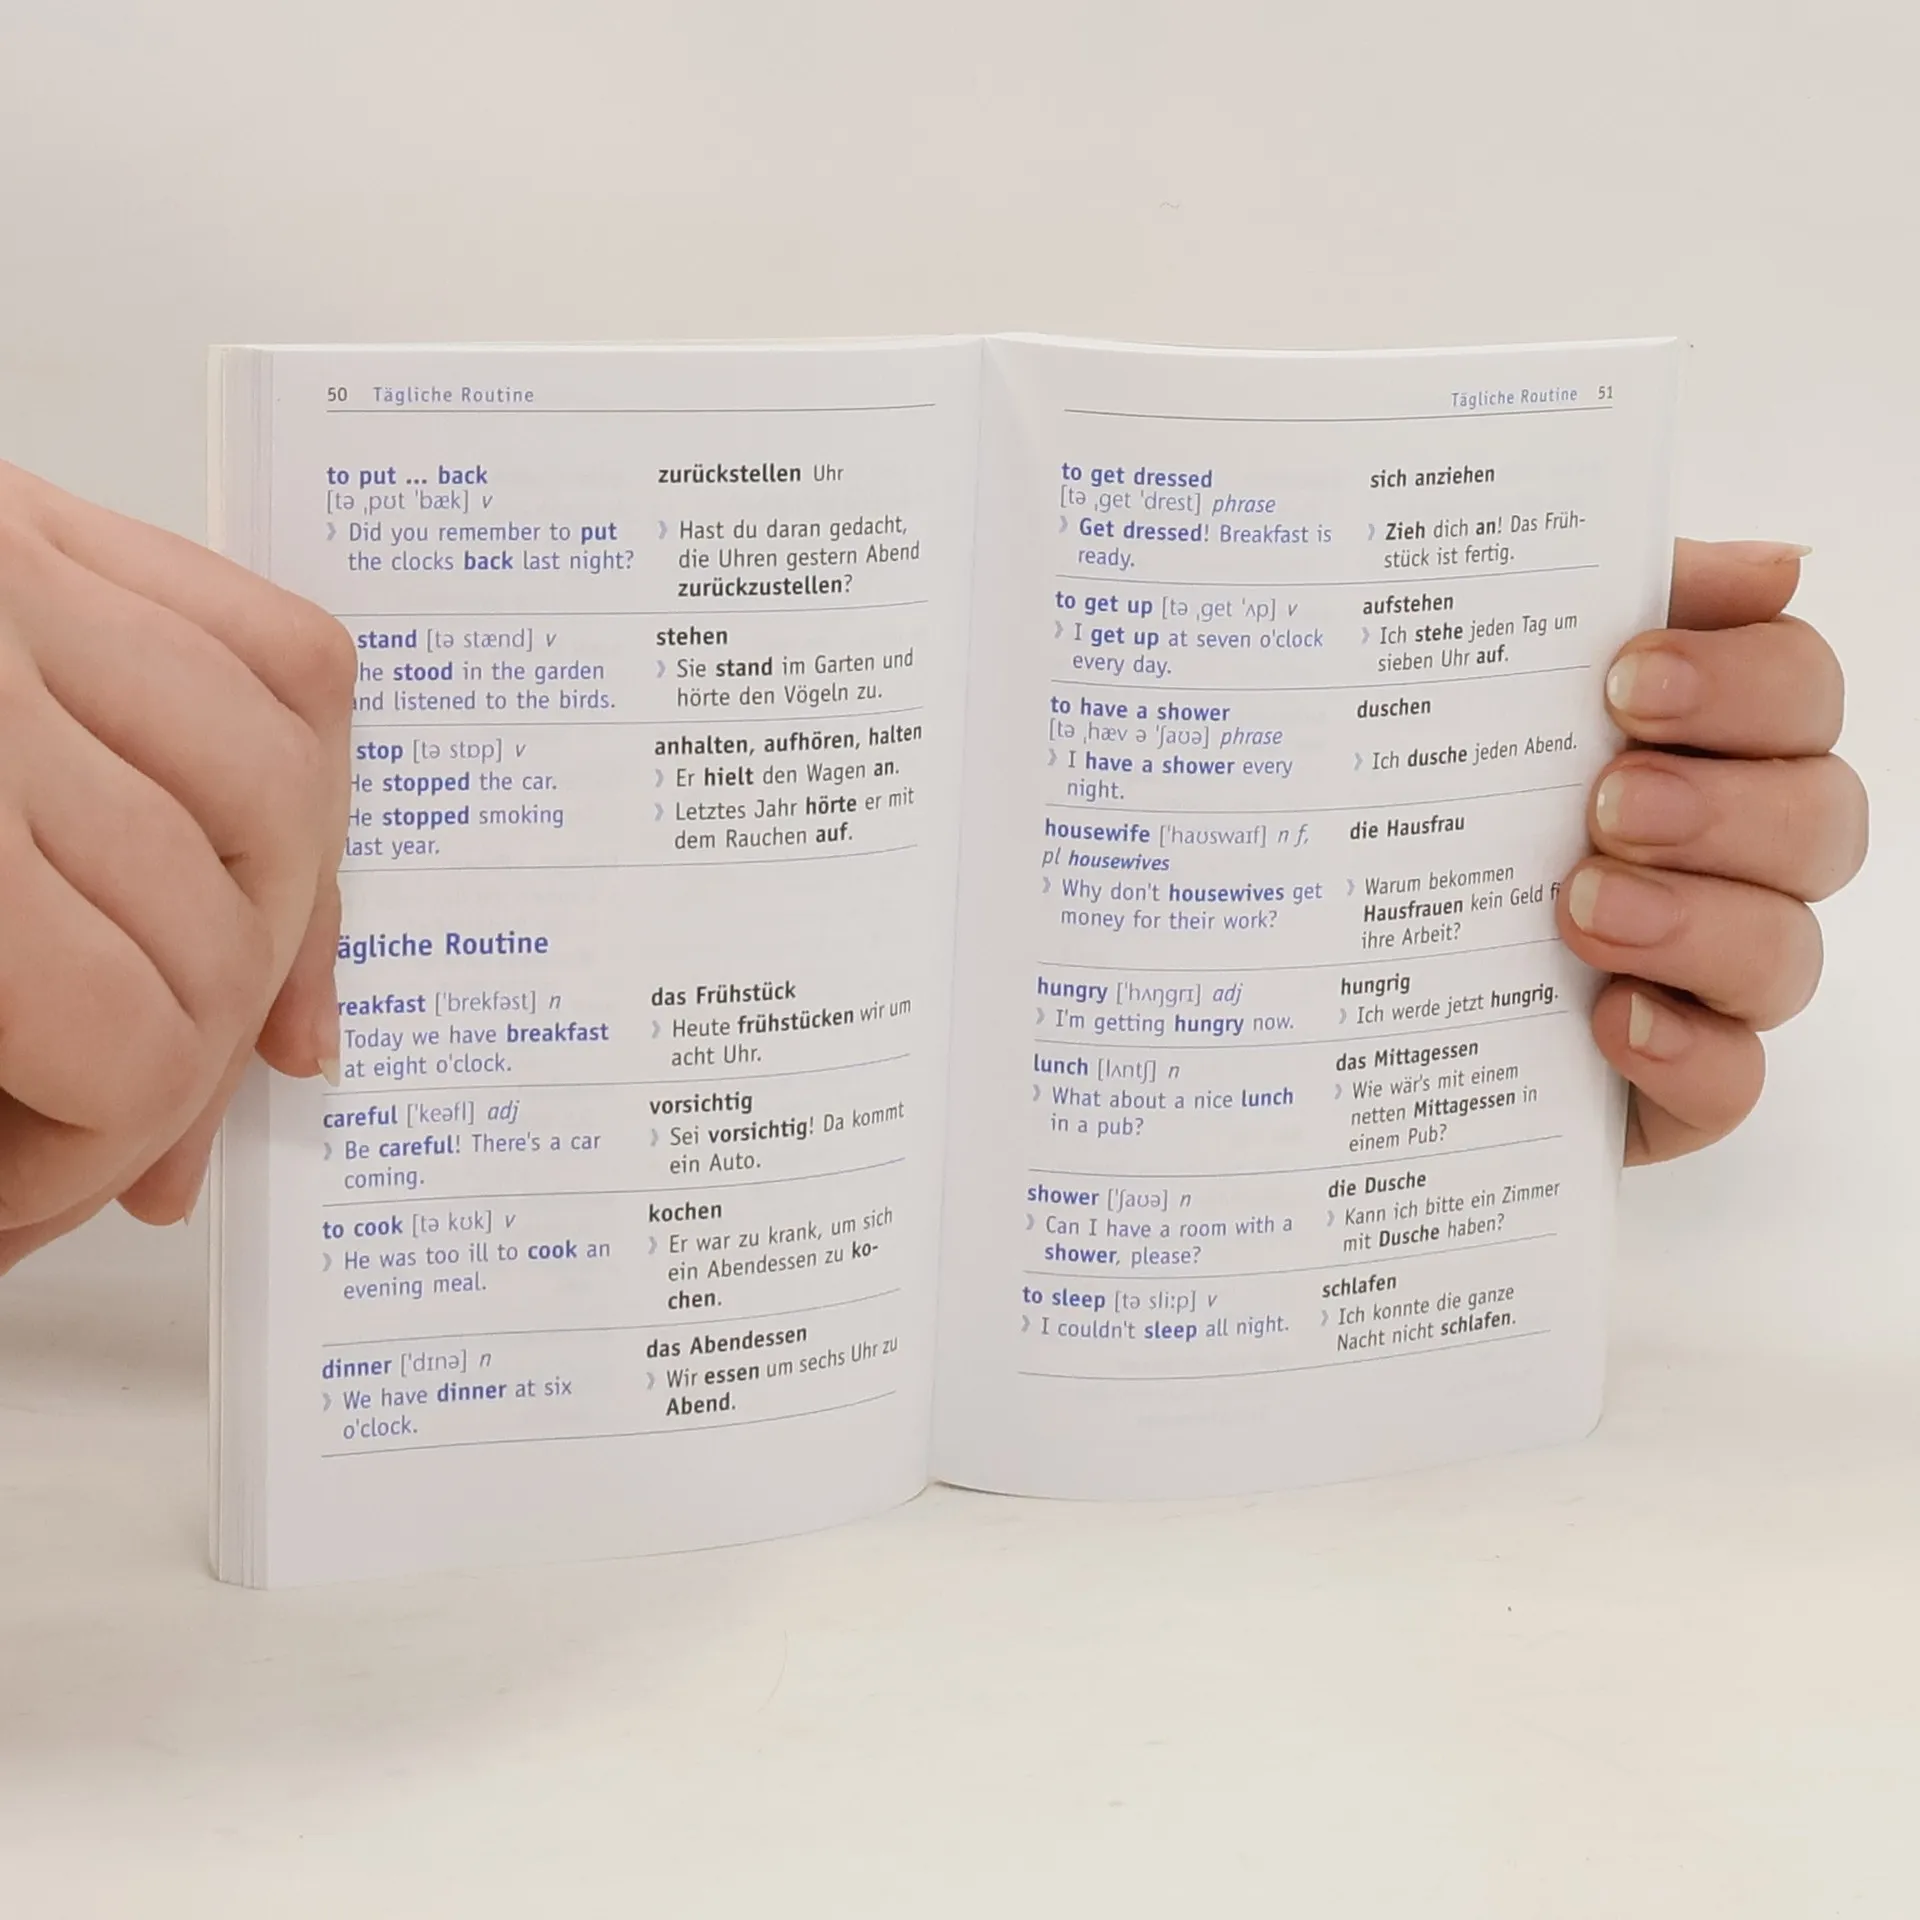 50 Tägliche Routine
to put ... back
[tə ˌpʊt 'bæk] v
》 Did you remember to put
the clocks back last night?
zurückstellen Uhr
》 Hast du daran gedacht,
die Uhren gestern Abend
zurückzustellen?
stand [tə stænd] v
he stood in the garden
and listened to the birds.
stehen
》 Sie stand im Garten und
hörte den Vögeln zu.
stop [tə stɒp] v
He stopped the car.
He stopped smoking
last year.
anhalten, aufhören, halten
》 Er hielt den Wagen an.
》 Letztes Jahr hörte er mit
dem Rauchen auf.
ägliche Routine
reakfast ['brekfəst] n
Today we have breakfast
at eight o'clock.
das Frühstück
》 Heute frühstücken wir um
acht Uhr.
careful ['keəfl] adj
》 Be careful! There's a car
coming.
vorsichtig
》 Sei vorsichtig! Da kommt
ein Auto.
to cook [tə kʊk] v
》 He was too ill to cook an
evening meal.
kochen
》 Er war zu krank, um sich
ein Abendessen zu ko-
chen.
dinner ['dɪnə] n
》 We have dinner at six
o'clock.
das Abendessen
》 Wir essen um sechs Uhr zu
Abend.
Tägliche Routine 51
to get dressed
[tə ˌget 'drest] phrase
》 Get dressed! Breakfast is
ready.
sich anziehen
》 Zieh dich an! Das Früh-
stück ist fertig.
to get up [tə ˌget 'ʌp] v
》 I get up at seven o'clock
every day.
aufstehen
》 Ich stehe jeden Tag um
sieben Uhr auf.
to have a shower
[tə ˌhæv ə 'ʃaʊə] phrase
》 I have a shower every
night.
duschen
》 Ich dusche jeden Abend.
housewife ['haʊswaɪf] n f,
pl housewives
》 Why don't housewives get
money for their work?
die Hausfrau
》 Warum bekommen
Hausfrauen kein Geld f
ihre Arbeit?
hungry ['hʌŋgrɪ] adj
》 I'm getting hungry now.
hungrig
》 Ich werde jetzt hungrig.
lunch [lʌntʃ] n
》 What about a nice lunch
in a pub?
das Mittagessen
》 Wie wär's mit einem
netten Mittagessen in
einem Pub?
shower ['ʃaʊə] n
》 Can I have a room with a
shower, please?
die Dusche
》 Kann ich bitte ein Zimmer
mit Dusche haben?
to sleep [tə sliːp] v
》 I couldn't sleep all night.
schlafen
》 Ich konnte die ganze
Nacht nicht schlafen.